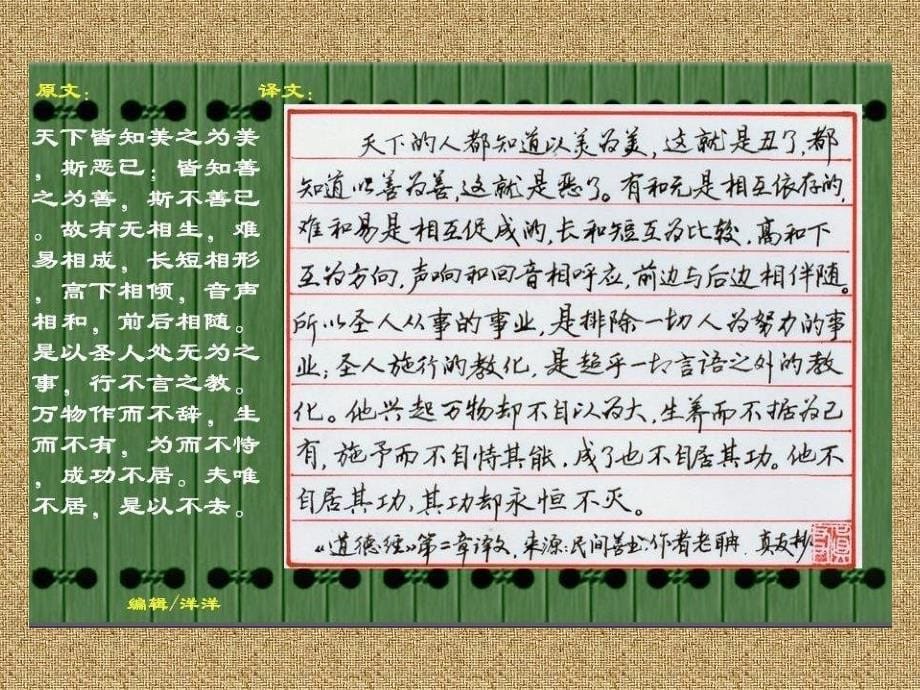 原文：
天下皆知美之为美
，斯恶已；皆知善
之为善，斯不善已
。故有无相生，难
易相成，长短相形
，高下相倾，音声
相和，前后相随。
是以圣人处无为之
事，行不言之教。
万物作而不辞，生
而不有，为而不恃
，成功不居。夫唯
不居，是以不去。
译文：
天下的人都知道以美为美，这就是丑了，都
知道以善为善，这就是恶了。有和无是相互依存的，
难和易是相互促成的，长和短互为比较，高和下
互为方向，声响和回音相呼应，前边与后边相伴随。
所以圣人从事的事业，是排除一切人为努力的事
业；圣人施行的教化，是超乎一切言语之外的教
化。他兴起万物却不自以为大，生养而不据为己
有，施予而不自恃其能，成了也不自居其功。他不
自居其功，其功却永恒不灭。
《道德经》第二章译文，来源：民间善书 作者老聃 真友抄
编辑/洋洋